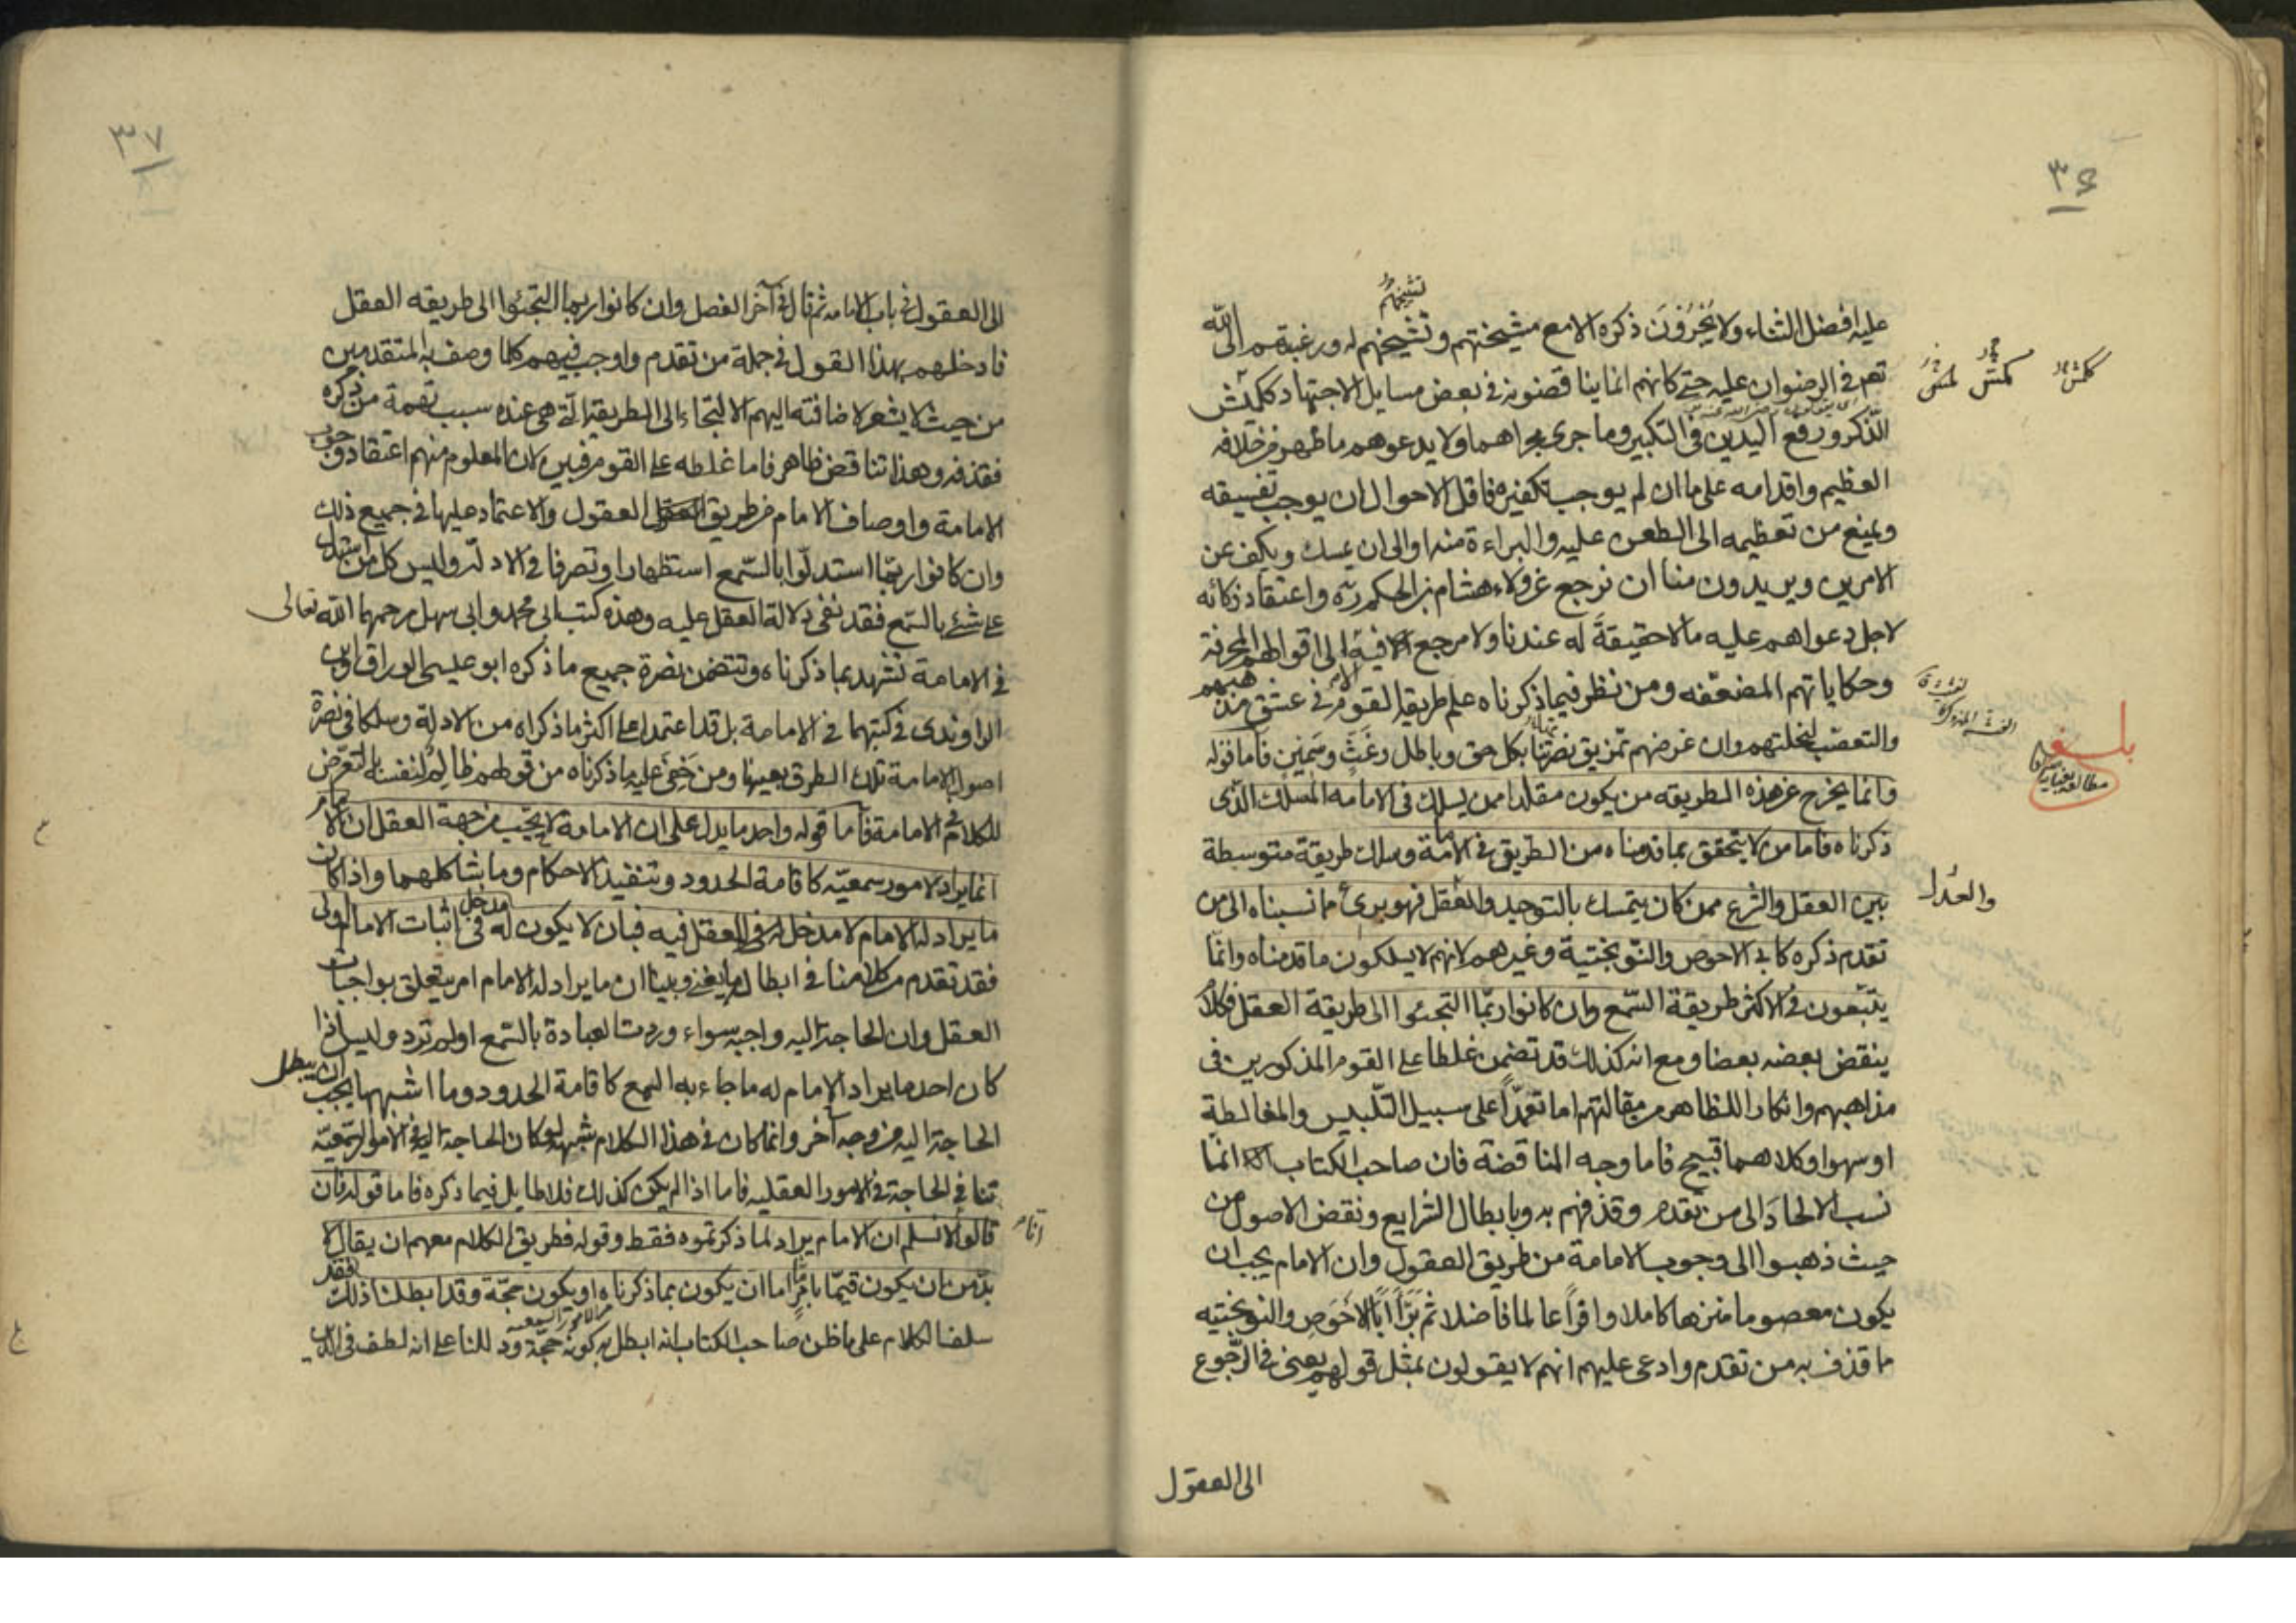 ٣٦
عليه افضل الثناء ولا يُخْرِفُونَ ذكره الا مع مشيختهم وتشيخهم له ورغبتهم الى الله
تعم في الرضوان عليه حتى كانهم انما يناقضونه في بعض مسايل الاجتهاد كمش
الذكر ورفع اليدين في التكبير وما جرى مجراهما ولا يدعوهم ما ظهر من خلافه
العظيم واقدامه على ما ان لم يوجب تكفيره فاقل الاحوال ان يوجب تفسيقه
ويمنع من تعظيمه الى الطعن عليه والبراءة منه او الى ان يمسك ويكف عن
الامرين ويريدون منا ان نرجع عن ولاء هشام بن الحكم ره واعتقاد زكائه
لاجل دعواهم عليه ما لا حقيقةَ له عندنا ولا مرجع فيه الا الى اقوالهم المحرفة
وحكاياتهم المضعّفه ومن نظر فيما ذكرناه علم طريقه القوم في عشق مذهبهم
والتعصّب لنحلتهم وان غرضهم تمزيق نصرتنا بكل حق وباطل وغَثَّ وسَمِينٍ فاما قوله
وانما يخرج عن هذه الطريقه من يكون مقلدا ممن يسلك في الامامه المسلك الذى
ذكرناه فاما من لا يتحقق بما قدمناه من الطريق في الامامة وسلك طريقة متوسطة
بين العقل والشرع ممن كان يتمسك بالتوحيد والعقل فهو برئ مما نسبناه الى من
والعدل
تقدم ذكره كابى الاحوص والنّوبختية وغيرهم لانهم لا يسلكون ما قدمناه وانما
يتبّعون في الاكثر طريقة السّمع وان كانوا ربّما التجئوا الى طريقة العقل فكلام
ينقض بعضه بعضا ومع انه كذلك قد تضمن غلطا على القوم المذكورين في
مذاهبهم وانكارا للظاهر من مقالتهم اما تعمّداً على سبيل التّلبيس والمغالطة
او سهوا وكلاهما قبيح فاما وجه المناقضة فان صاحب الكتاب انما
نسب الالحادَ الى من تقدم وقذفهم به وبابطال الشرايع ونقض الاصول من
حيث ذهبوا الى وجوب الامامة من طريق العقول وان الامام يجب ان
يكون معصوما منزها كاملا وافراً عالما فاضلا ثم بَرَّأ ابا الاحَوصِ والنوبختيه
ما قذف به من تقدم وادعى عليهم انهم لا يقولون بمثل قولهم يعنى في الرّجوع
الى العقول
٣٧
الى العقول في باب الامامه ثم قال في آخر الفصل وان كانوا ربما التجئوا الى طريقه العقل
فادخلهم بهذا القول في جملة من تقدم واوجب فيهم كلما وصف به المتقدمين
من حيث لا يشعر لاضافته اليهم الالتجاء الى الطريقة التى هى عنده سبب تهمة من ذكره
فقذفه وهذا تناقض ظاهر فاما غلطه على القوم فبين لان المعلوم منهم اعتقاد وجوب
الامامة واوصاف الامام من طريق العقول والاعتماد عليها في جميع ذلك
وان كانوا ربّما استدلّوا بالسّمع استظهارا وتصرفا في الادلّة وليس كل من استدل
على شئ بالسّمع فقد نفى دلالة العقل عليه وهذه كتب ابى محمد وابى سهل رحمهما الله تعالى
في الامامة تشهد بما ذكرناه وتتضمن نصرة جميع ما ذكره ابو عيسى الوراق وابن
الراوندى في كتبهما في الامامة بل قد اعتمدا على اكثر ما ذكراه من الادلة وسلكا في نصرة
اصول الامامة تلك الطرق بعينها ومن خَفِىَ عليه ما ذكرناه من قولهم ظالم لنفسه بالتعرّض
للكلام في الامامة فاما قوله واحد ما يدل على ان الامامة لا تجب من جهة العقل ان الامام
انما يراد لامور سمعيّه كاقامة الحدود وتنفيذ الاحكام وما يشاكلهما واذا كان
ما يراد له الامام لا مدخل له في العقل فيه فبان لا يكون له مدخل في اثبات الامام اولى
فقد تقدم من كلامنا في ابطاله ما يغنى وبينا ان ما يراد له الامام امر يتعلق بواجبات
العقل وان الحاجة اليه واجبه سواء وردت العبادة بالسّمع او لم ترد وليس اذا
كان احد ما يراد الامام له ما جاء به السمع كاقامة الحدود وما اشبهها يجب ان يبطل
الحاجة اليه من وجه آخر وانما كان في هذا الكلام شبهه لو كان الحاجة اليه في الامور السّمعيّه
تنافى الحاجة في الامور العقليه فاما اذا لم يكن كذلك فلا طايل فيما ذكره فاما قوله فان
قالوا لا نسلم ان الامام يراد لما ذكرتموه فقط وقوله فطريق الكلام معهم ان يقال لا
بدّ من ان يكون قيمّا بامرٍ اما ان يكون بما ذكرناه او يكون حجّة وقد ابطلنا ذلك فقد
سلف الكلام على ما ظن صاحب الكتاب انه ابطل به كونه حجّة ودللنا على انه لطف في الدين